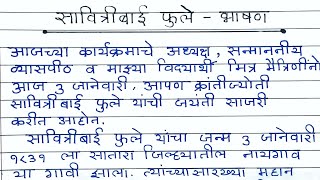 सावित्रीबाई फुले - भाषण
आजच्या कार्यक्रमाचे अध्यक्ष, सन्माननीय
व्यासपीठ व माझ्या विद्यार्थी मित्र मैत्रिणींनो
आज 3 जानेवारी, आपण क्रांतीज्योती
सावित्रीबाई फुले यांची जयंती साजरी
करीत आहोत.
सावित्रीबाई फुले यांचा जन्म 3 जानेवारी
१८३१ ला सातारा जिल्ह्यातील नायगाव
या गावी झाला. त्यांच्यासारख्या महान